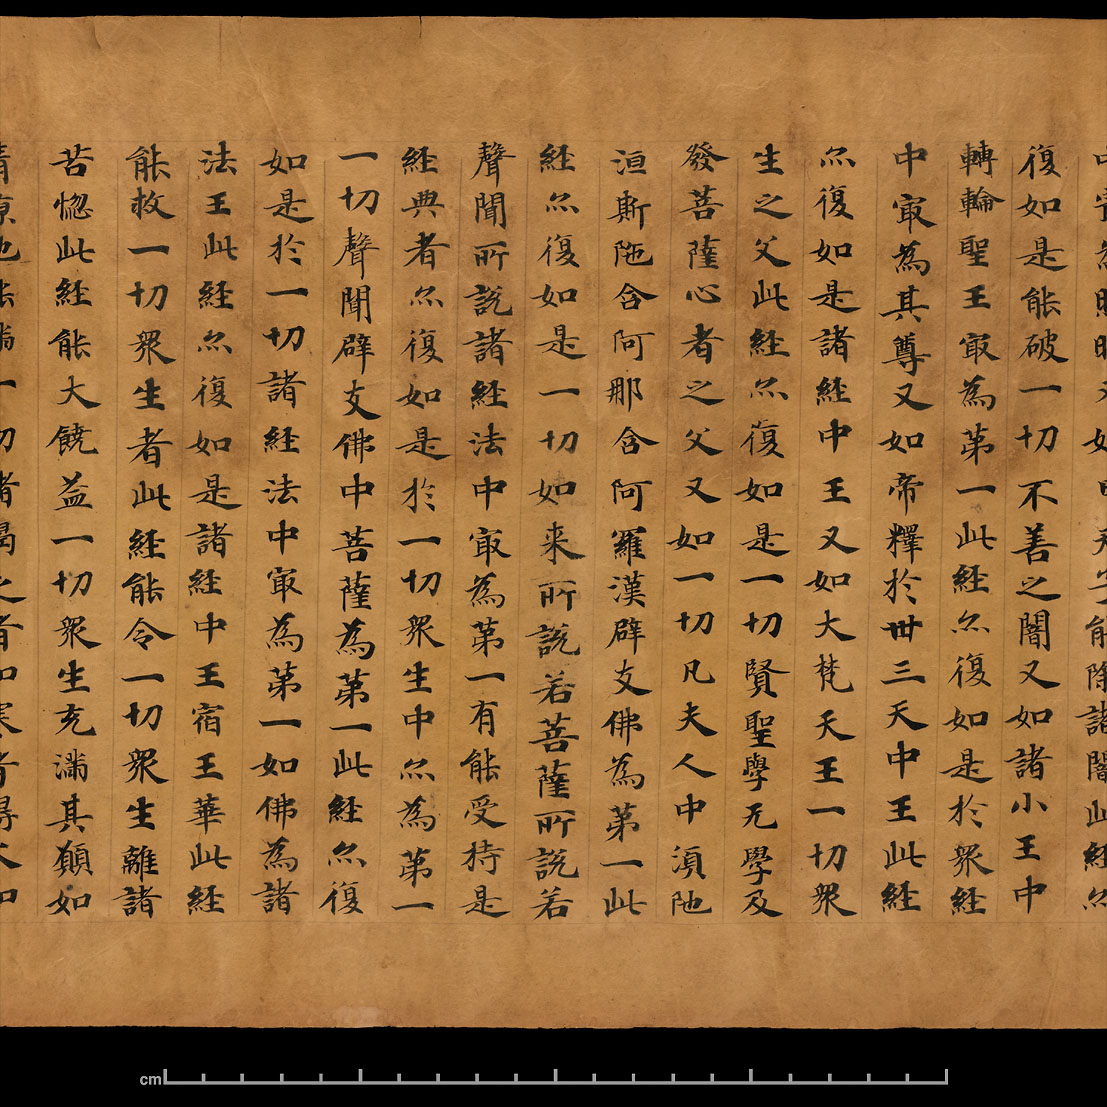 能除諸闇此経
復如是能破一切不善之闇又如諸小王中
轉輪聖王冣為苐一此経亦復如是於衆経
中冣為其尊又如帝釋於丗三天中王此経
亦復如是諸経中王又如大梵天王一切衆
生之父此経亦復如是一切賢聖學无學及
發菩薩心者之父又如一切凡夫人中湏陁
洹斯陁含阿那含阿羅漢辟支佛為苐一此
経亦復如是一切如来所說若菩薩所說若
聲聞所說諸経法中冣為苐一有能受持是
経典者亦復如是於一切衆生中亦為苐一
一切聲聞辟支佛中菩薩為苐一此経亦復
如是於一切諸経法中冣為苐一如佛為諸
法王此経亦復如是諸経中王宿王華此経
能救一切衆生者此経能令一切衆生離諸
苦惚此経能大饒益一切衆生充滿其願如
cm